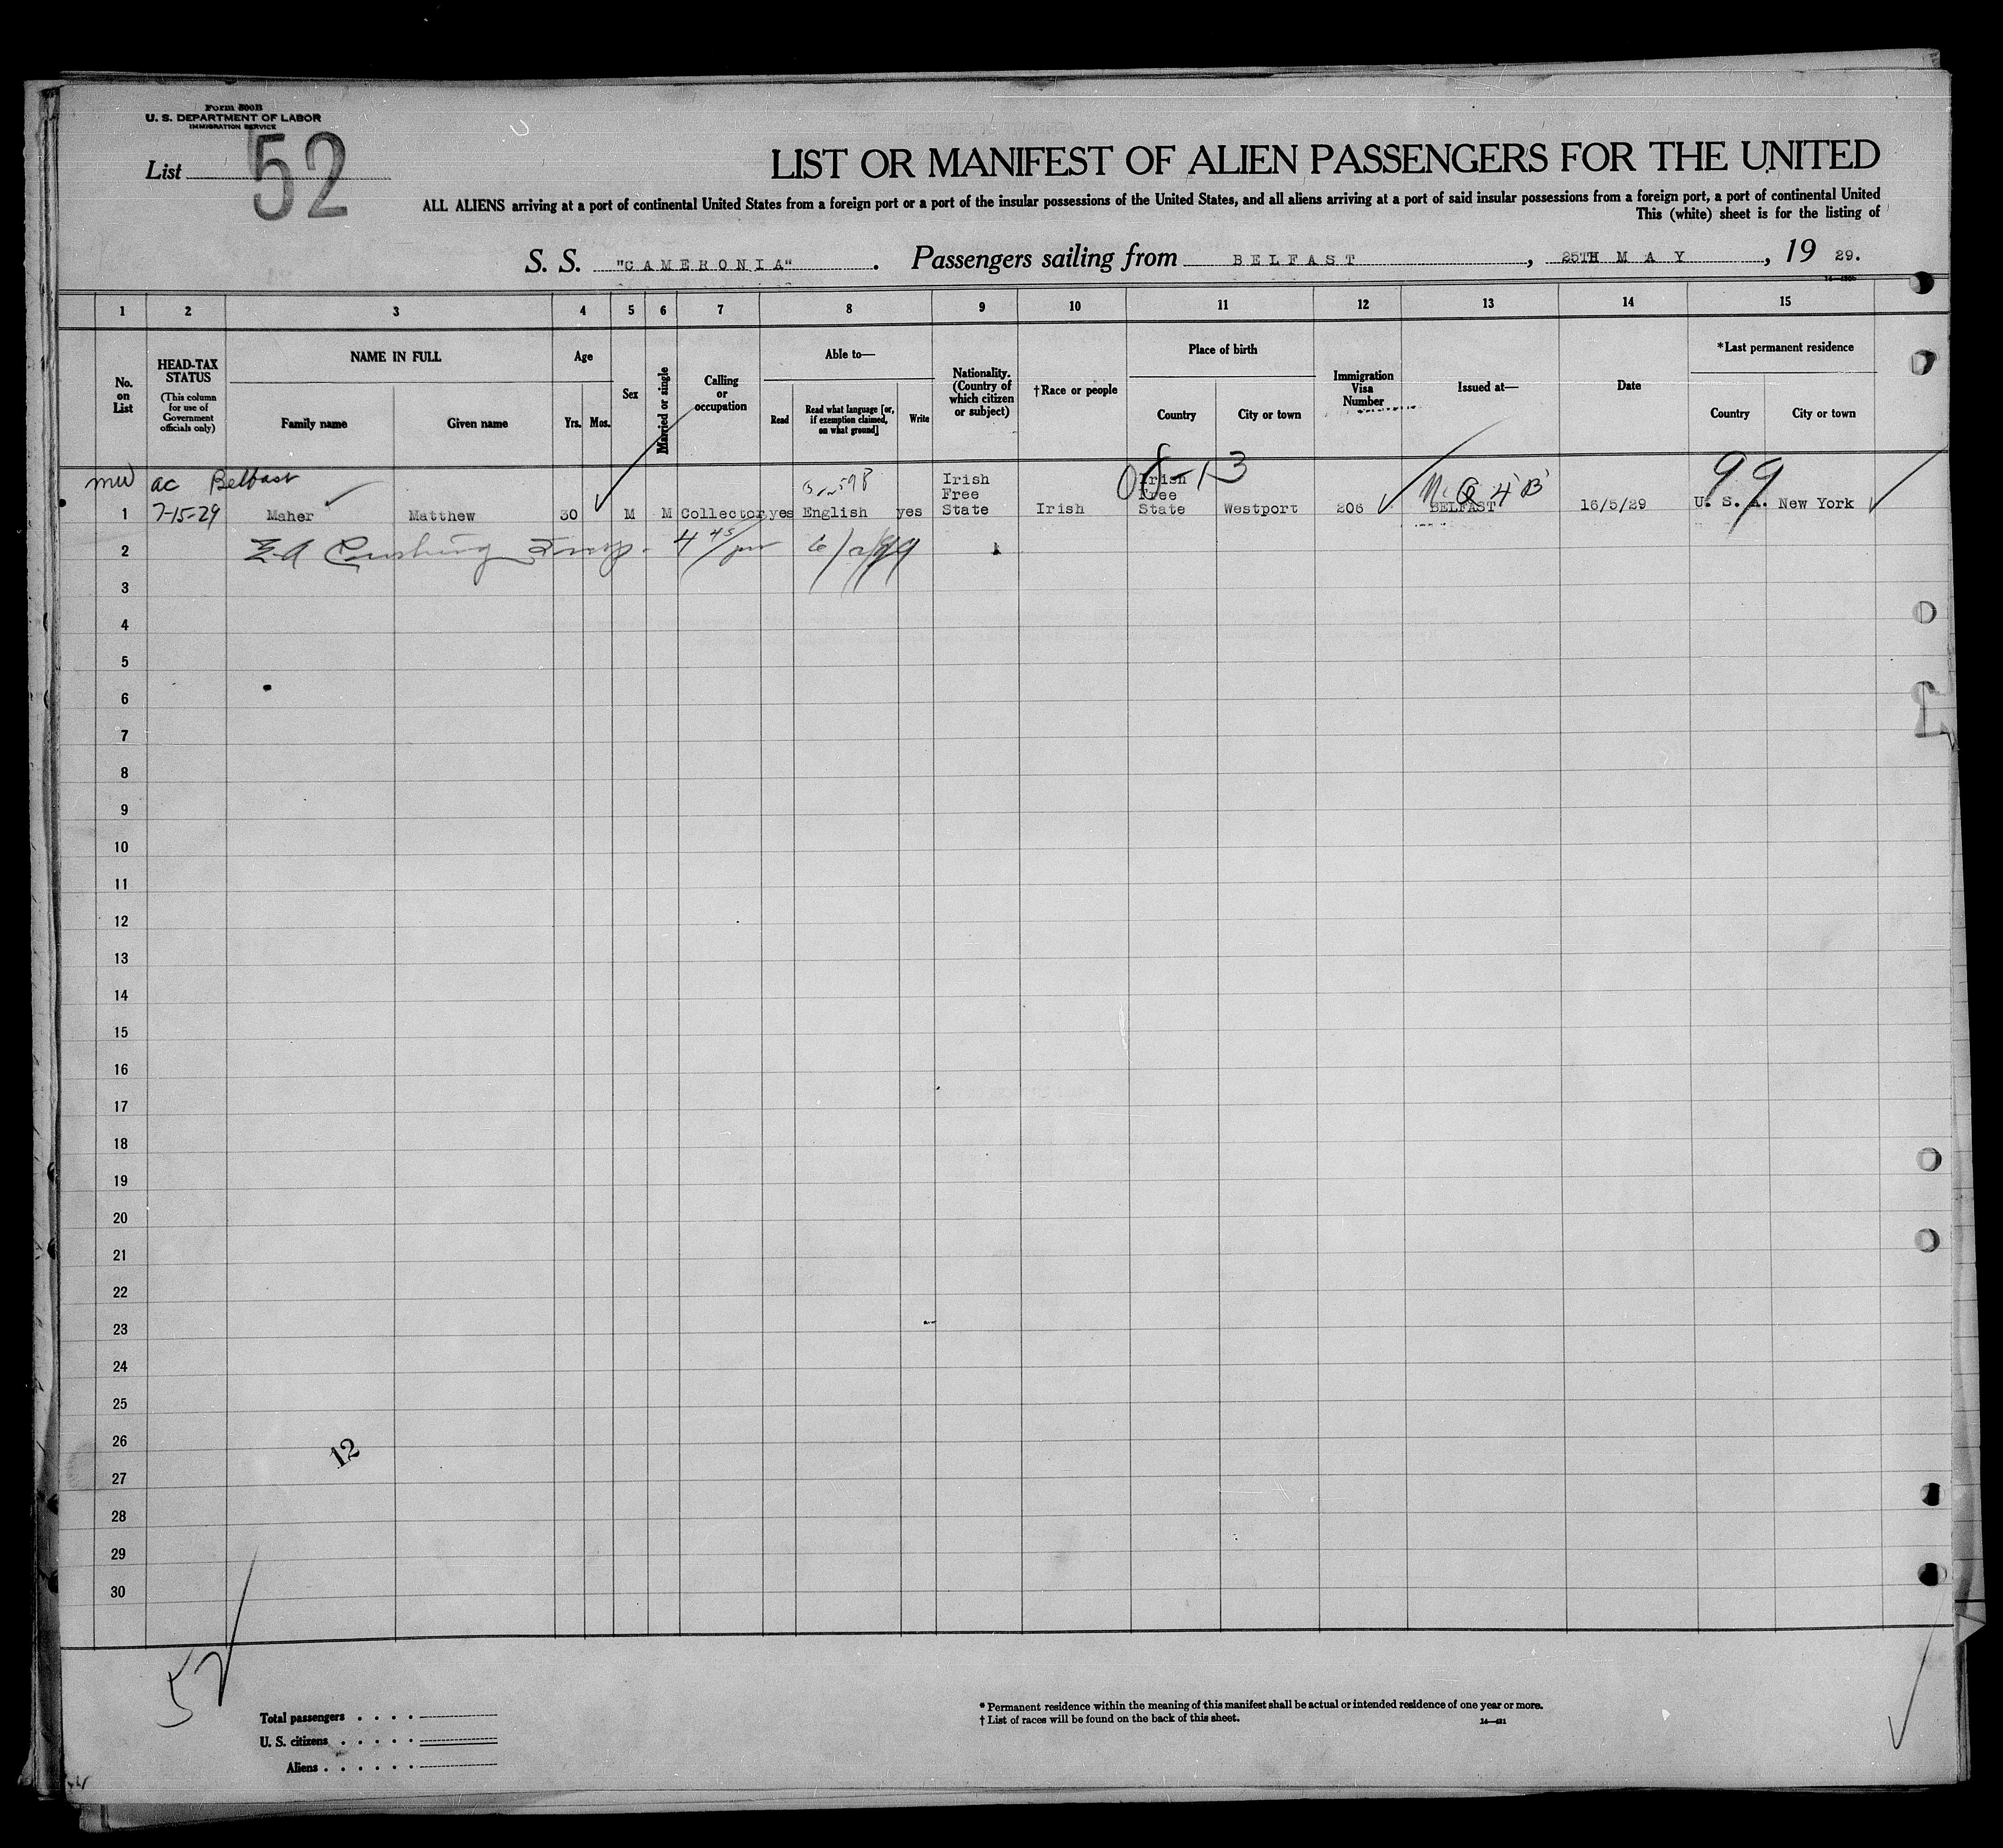 Form 500B
U. S. DEPARTMENT OF LABOR
IMMIGRATION SERVICE
List 52
LIST OR MANIFEST OF ALIEN PASSENGERS FOR THE UNITED
ALL ALIENS arriving at a port of continental United States from a foreign port or a port of the insular possessions of the United States, and all aliens arriving at a port of said insular possessions from a foreign port, a port of continental United
This (white) sheet is for the listing of
S. S. "CAMERONIA". Passengers sailing from BELFAST, 25TH MAY, 19 29.
1 2 3 4 5 6 7 8 9 10 11 12 13 14 15
No. on List
HEAD-TAX STATUS
(This column for use of Government officials only)
NAME IN FULL
Family name Given name
Age
Yrs. Mos.
Sex
Married or single
Calling or occupation
Able to—
Read
Read what language [or, if exemption claimed, on what ground]
Write
Nationality. (Country of which citizen or subject)
†Race or people
Place of birth
Country City or town
Immigration Visa Number
Issued at—
Date
*Last permanent residence
Country City or town
mw ac Belfast
08-13
99
1 7-15-29 Maher Matthew 30 M M Collector yes English yes Irish Free State Irish Irish Free State Westport 206 BELFAST 16/5/29 U. S. A. New York
2 Cushing
3
4
5
6
7
8
9
10
11
12
13
14
15
16
17
18
19
20
21
22
23
24
25
26
12
27
28
29
30
52
Total passengers . . . .
U. S. citizens . . . . .
Aliens . . . . . .
* Permanent residence within the meaning of this manifest shall be actual or intended residence of one year or more.
† List of races will be found on the back of this sheet.